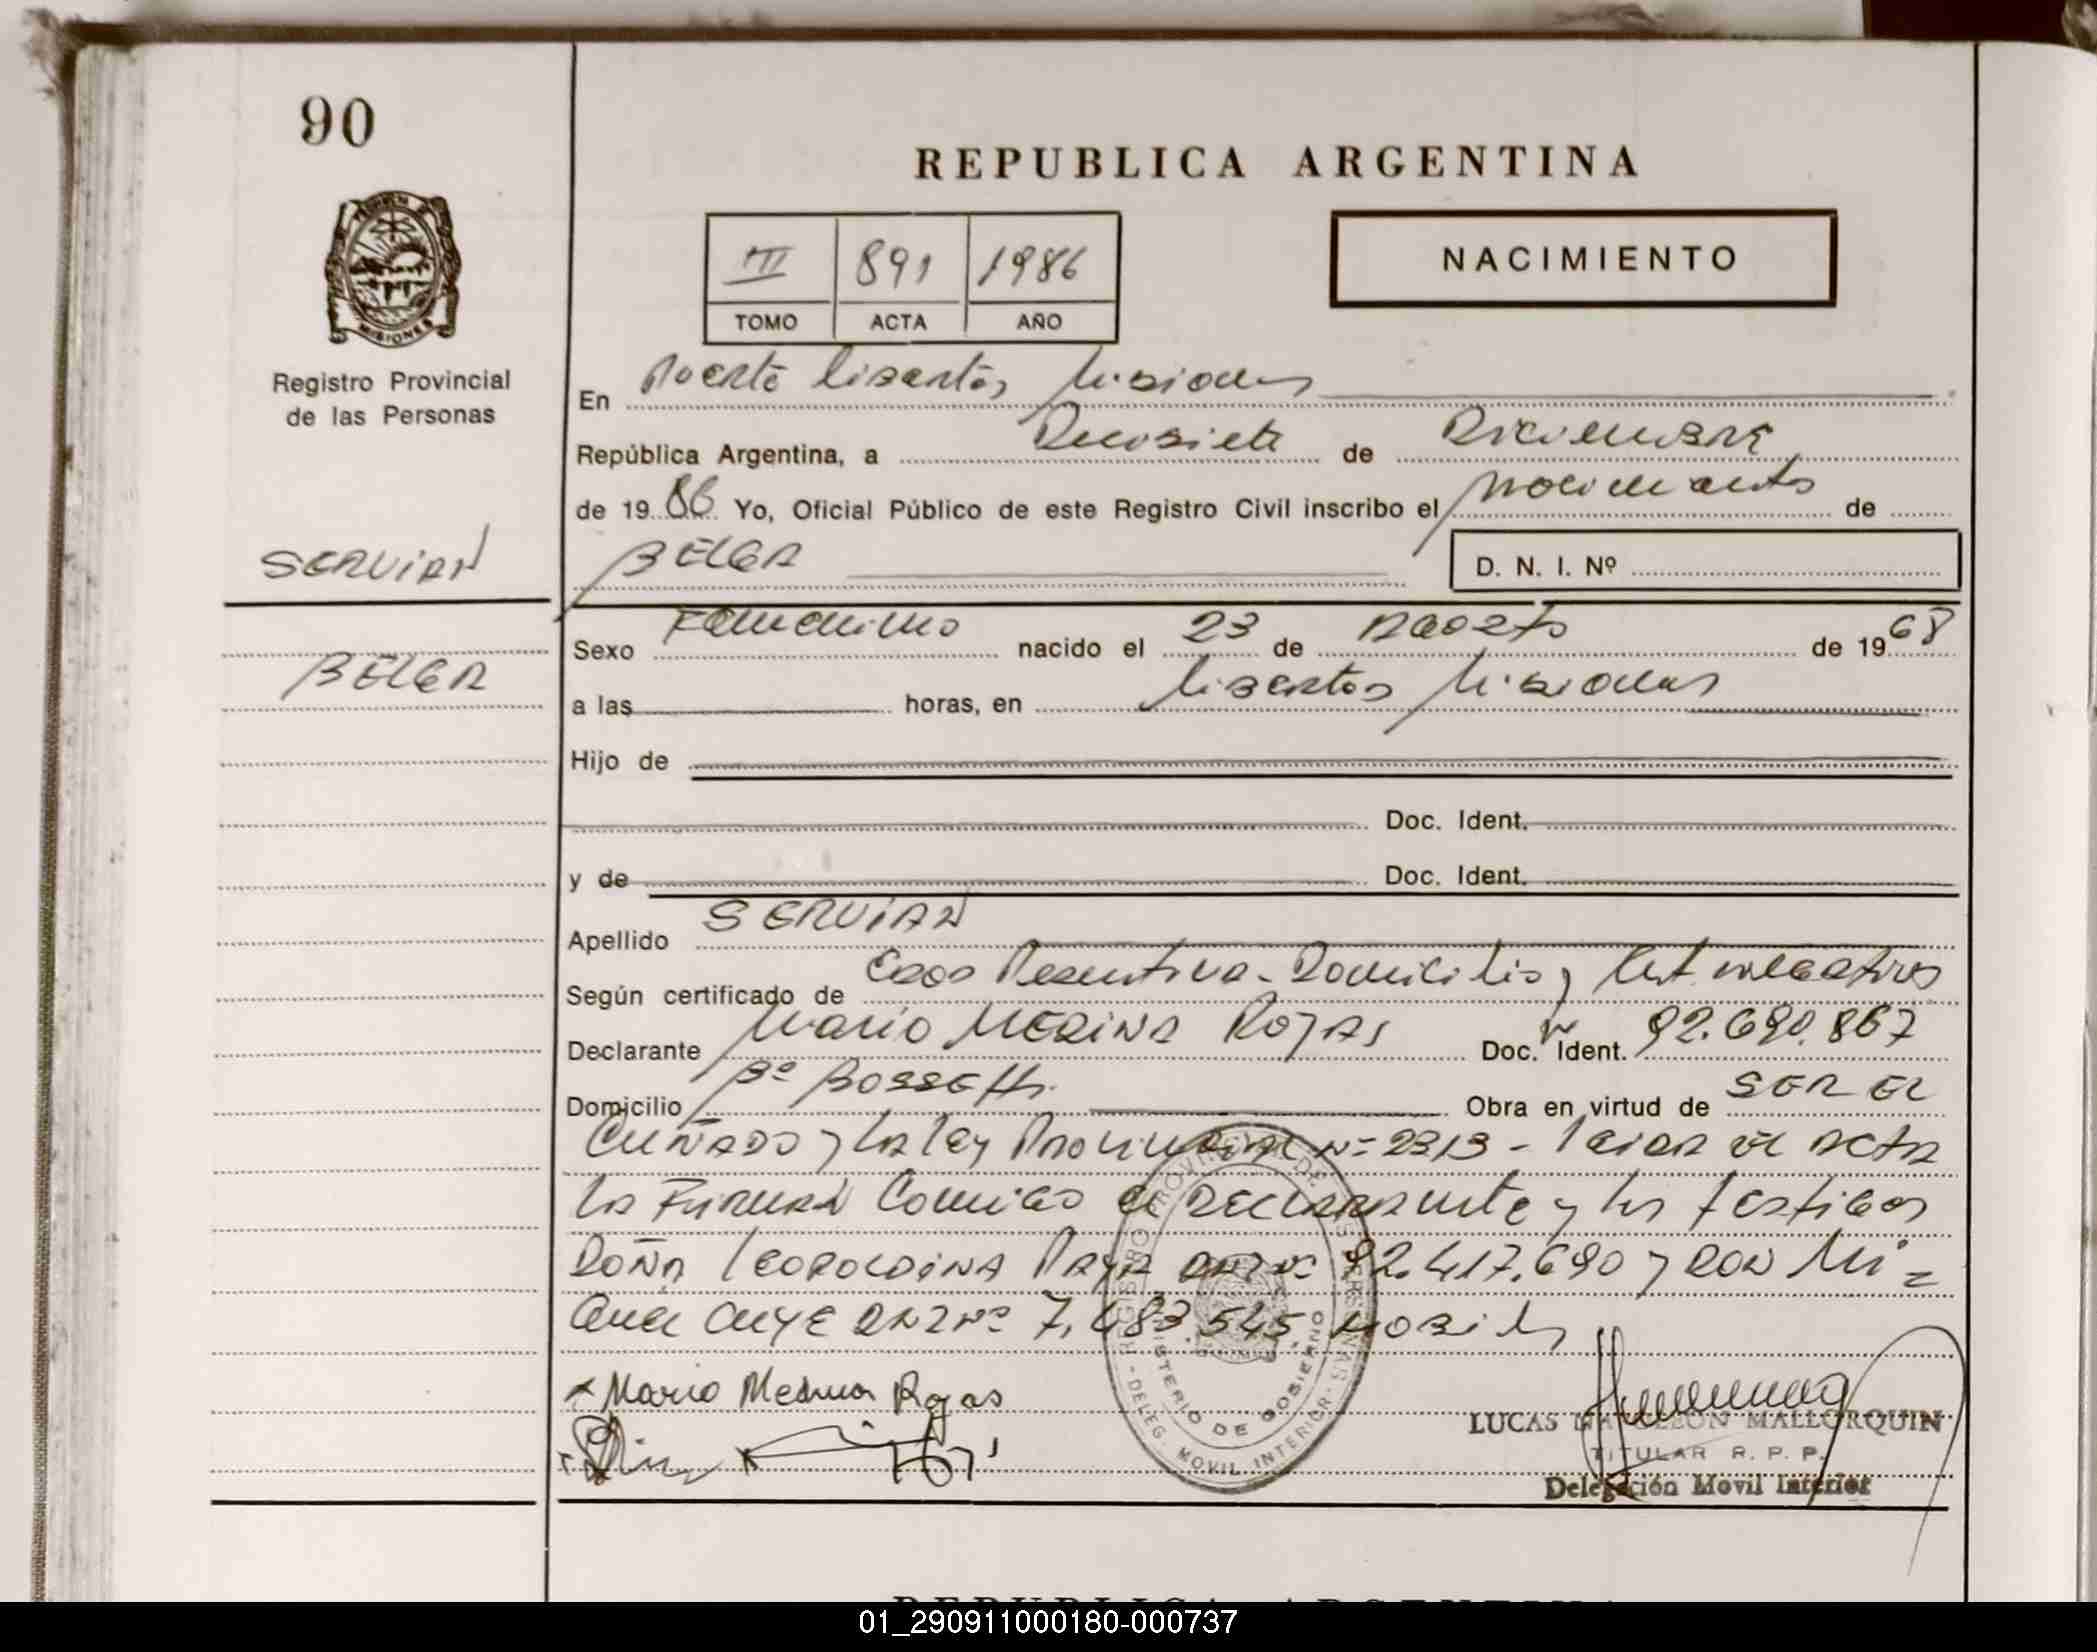 90
REPUBLICA ARGENTINA
III 891 1986
TOMO ACTA AÑO
NACIMIENTO
MISIONES
Registro Provincial
de las Personas
En Puerto Libertad, Misiones
República Argentina, a Diecisiete de Diciembre
de 19 86 Yo, Oficial Público de este Registro Civil inscribo el Nacimiento de
SERVIAN
BELGA
D. N. I. Nº
Sexo Femenino nacido el 23 de Agosto de 19 68
BELGA
a las horas, en Libertad Misiones
Hijo de
Doc. Ident.
y de Doc. Ident.
Apellido SERVIAN
Según certificado de Edad Presuntiva - Domicilio y Cert. negativo
Declarante Mario MEDINA ROJAS Doc. Ident. Nº 92.690.867
Domicilio Bº Bossetti Obra en virtud de SER EL
CUÑADO y la ley Provincial Nº 2313 - leida el acta
la Firman Conmigo el Declarante y los testigos
DOÑA LEOPOLDINA DNI Nº 92.417.690 y DON Mi=
DNI Nº 7.483.545
Mario Medina Rojas
REGISTRO PROVINCIAL DE LAS PERSONAS
MINISTERIO DE GOBIERNO
- DELEG. MOVIL INTERIOR -
LUCAS NAPOLEON MALLORQUIN
TITULAR R. P. P.
Delegación Movil Interior
REPUBLICA ARGENTINA
01_290911000180-000737